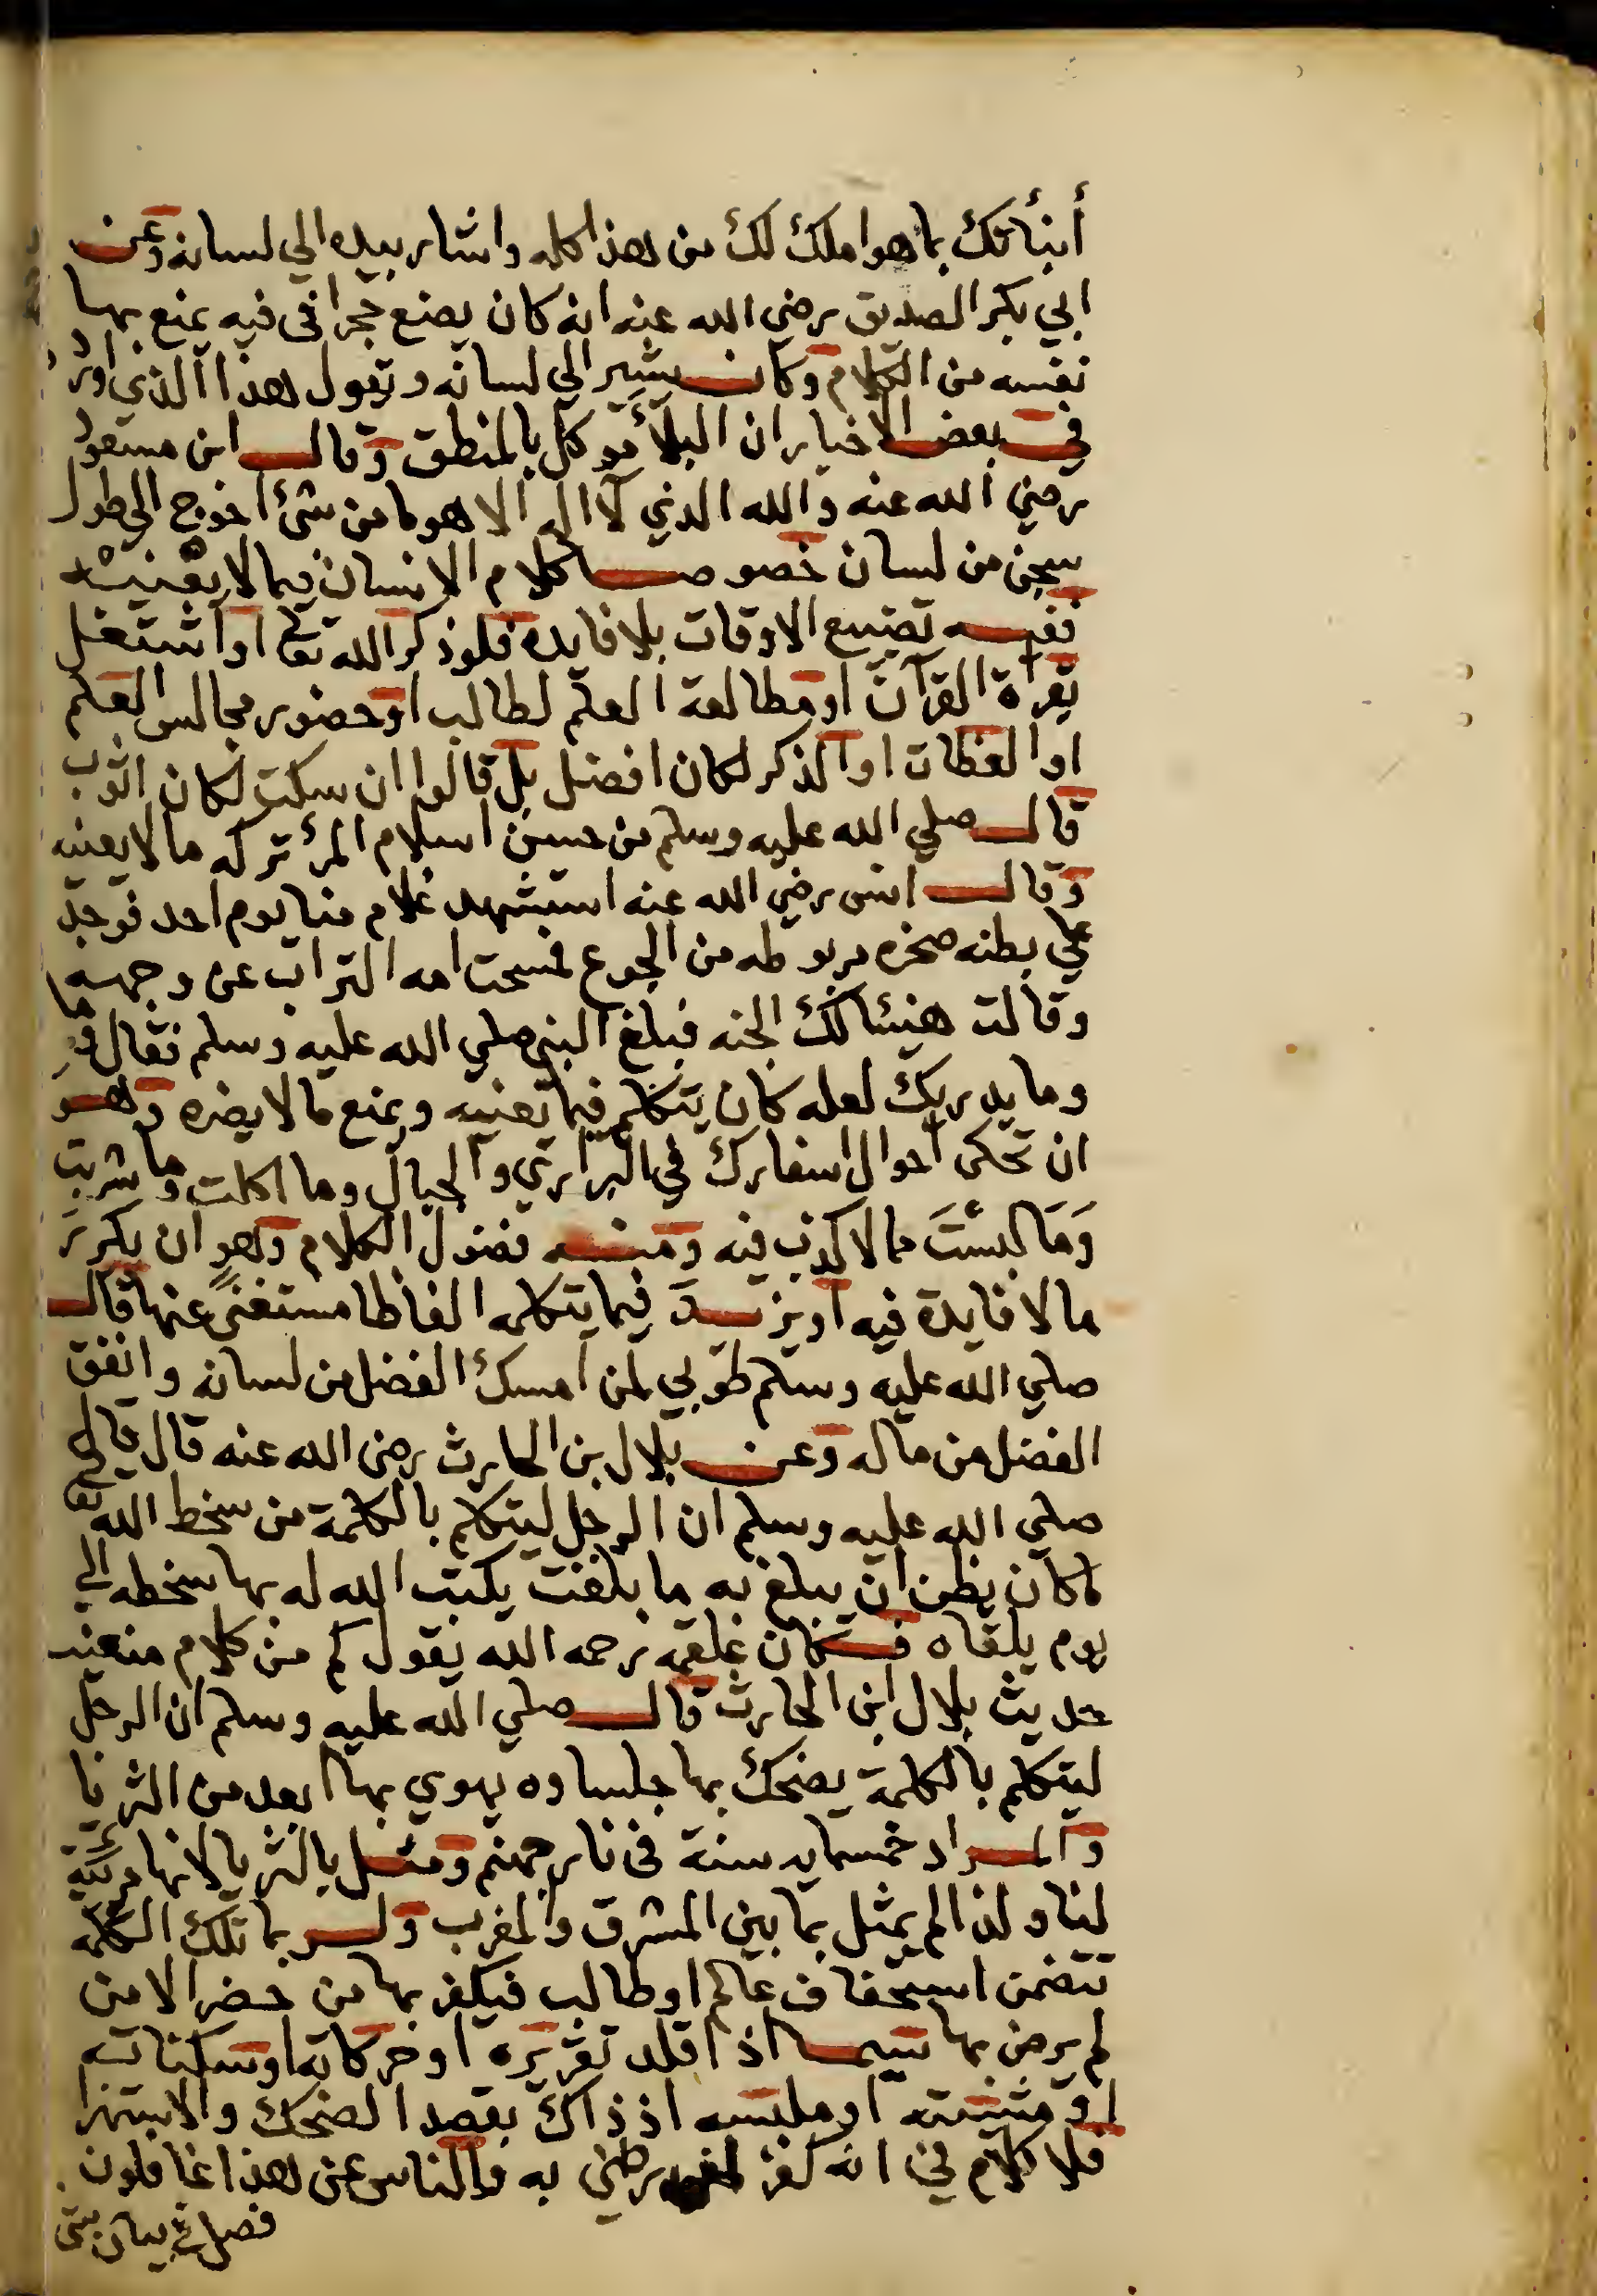 أنبأتك بما هو املك لك من هذا كله واشار بيده الي لسانه وعن
ابي بكر الصديق رضي الله عنه انه كان يضع حجرا في فيه يمنع بها
نفسه من الكلام وكان يشير الي لسانه ويقول هذا الذي اورد
في بعض الاخبار ان البلأ موكل بالمنطق وقال ابن مسعود
رضي الله عنه والله الذي لا اله الا هو ما من شئ احوج الي طول
سجن من لسان خصوصا كلام الانسان فيما لا يعنيه
ففيه تضييع الاوقات بلا فايده فلو ذكر الله تعالى او اشتغل
بقراة القرآن او مطالعة العلم لطالب او حضور مجالس العلم
او العظات او الذكر لكان افضل بل قالوا ان سكت لكان اثوب
قال صلي الله عليه وسلم من حسن اسلام المرئ تركه ما لا يعنيه
وقال انس رضي الله عنه استشهد غلام منا يوم احد فوجد
علي بطنه صخره مربوطه من الجوع فمسحت امه التراب عن وجهه
وقالت هنيئا لك الجنه فبلغ النبي صلي الله عليه وسلم فقال لها
وما يدريك لعله كان يتكلم فيما لا يعنيه ويمنع ما لا يضره وهو
ان تحكى احوال اسفارك في البراري والجبال وما اكلت وما شربت
وَمَا لبستَ مما لا كذب فيه ومنه فضول الكلام وهو ان يكرر
ما لا فايدة فيه او يزيد فيما يتكلم الفاظا مستغنىً عنها قال
صلي الله عليه وسلم طوبي لمن امسك الفضل من لسانه وانفق
الفضل من ماله وعن بلال بن الحارث رضي الله عنه قال قال
صلي الله عليه وسلم ان الرجل ليتكلم بالكلمة من سخط الله تعالى
ما كان يظن ان يبلغ به ما بلغت يكتب الله له بها سخطه الي
يوم يلقاه فكان علقمه رحمه الله يقول كم من كلام منعنيه
حديث بلال ابن الحارث قال صلي الله عليه وسلم ان الرجل
ليتكلم بالكلمة يضحك بها جلساوه يهوي بها ابعد من الثريا
والمراد خمسمايه سنة في نار جهنم ومثل بالثريا لانها مرئية
لنا ولذا لم يمثل بما بين المشرق والمغرب ولربما تلك الكلمه
تتضمن استخفاف عالم او طالب فيكفر بها من حضر الا من
لم يرض بها سيما اذا قلد تقريره او حركاته او سكناته
او مشيته او ملبسه اذ ذاك بقصد الضحك والاستهزا
فلا كلام في انه كفر لمن رضي به والناس عن هذا غافلون
فصل في بيان